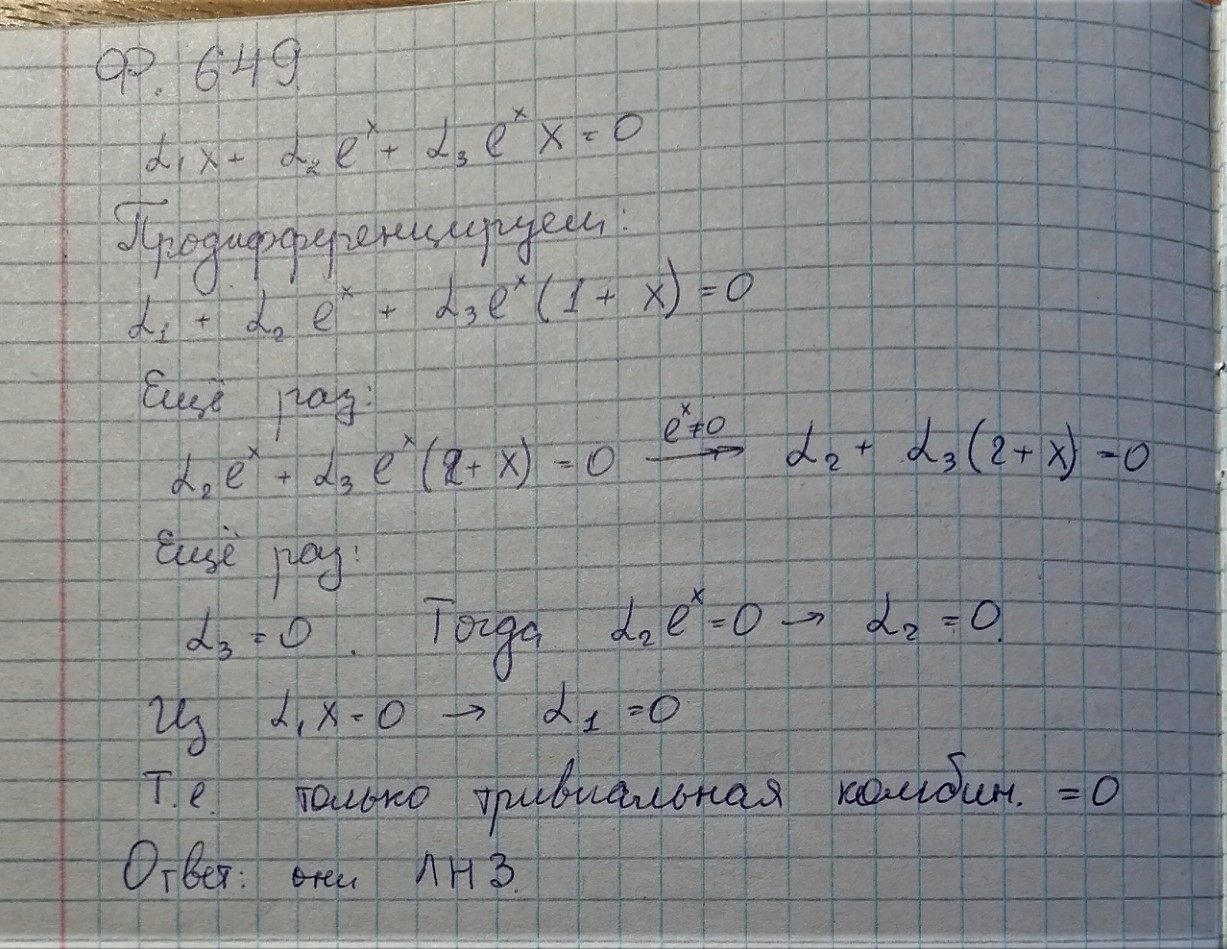 Ф. 649
α₁x + α₂eˣ + α₃eˣx = 0
Продифференцируем:
α₁ + α₂eˣ + α₃eˣ(1 + x) = 0
Ещё раз:
α₂eˣ + α₃eˣ(2 + x) = 0 eˣ≠0 → α₂ + α₃(2 + x) = 0
Ещё раз:
α₃ = 0. Тогда α₂eˣ = 0 → α₂ = 0.
Из α₁x = 0 → α₁ = 0
Т.е. только тривиальная комбин. = 0
Ответ: они ЛНЗ.